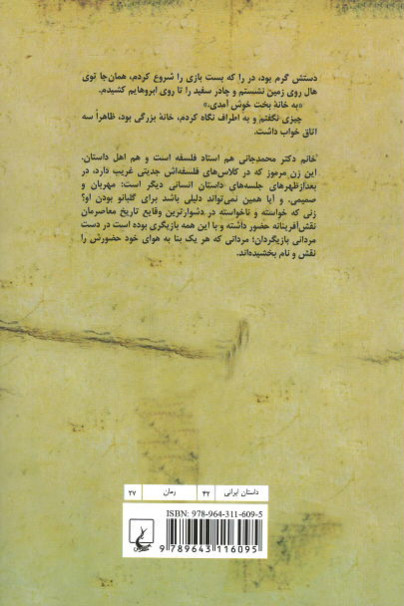 دستش گرم بود، در را که بست بازی را شروع کردم، همان‌جا توی
هال روی زمین نشستم و چادر سفید را تا روی ابروهایم کشیدم.
«به خانهٔ بخت خوش آمدی.»
چیزی نگفتم و به اطراف نگاه کردم، خانهٔ بزرگی بود، ظاهراً سه
اتاق خواب داشت.
خانم دکتر محمدجانی هم استاد فلسفه است و هم اهل داستان.
این زن مرموز که در کلاس‌های فلسفه‌اش جدیتی غریب دارد، در
بعدازظهرهای جلسه‌های داستان انسانی دیگر است: مهربان و
صمیمی. و آیا همین نمی‌تواند دلیلی باشد برای گلبانو بودن او؟
زنی که خواسته و ناخواسته در دشوارترین وقایع تاریخ معاصرمان
نقش‌آفرینانه حضور داشته و با این همه بازیگری بوده است در دست
مردانی بازیگردان؛ مردانی که هر یک بنا به هوای خود حضورش را
نقش و نام بخشیده‌اند.
داستان ایرانی ۴۲ رمان ۲۷
ISBN: 978-964-311-609-5
9 789643 116095